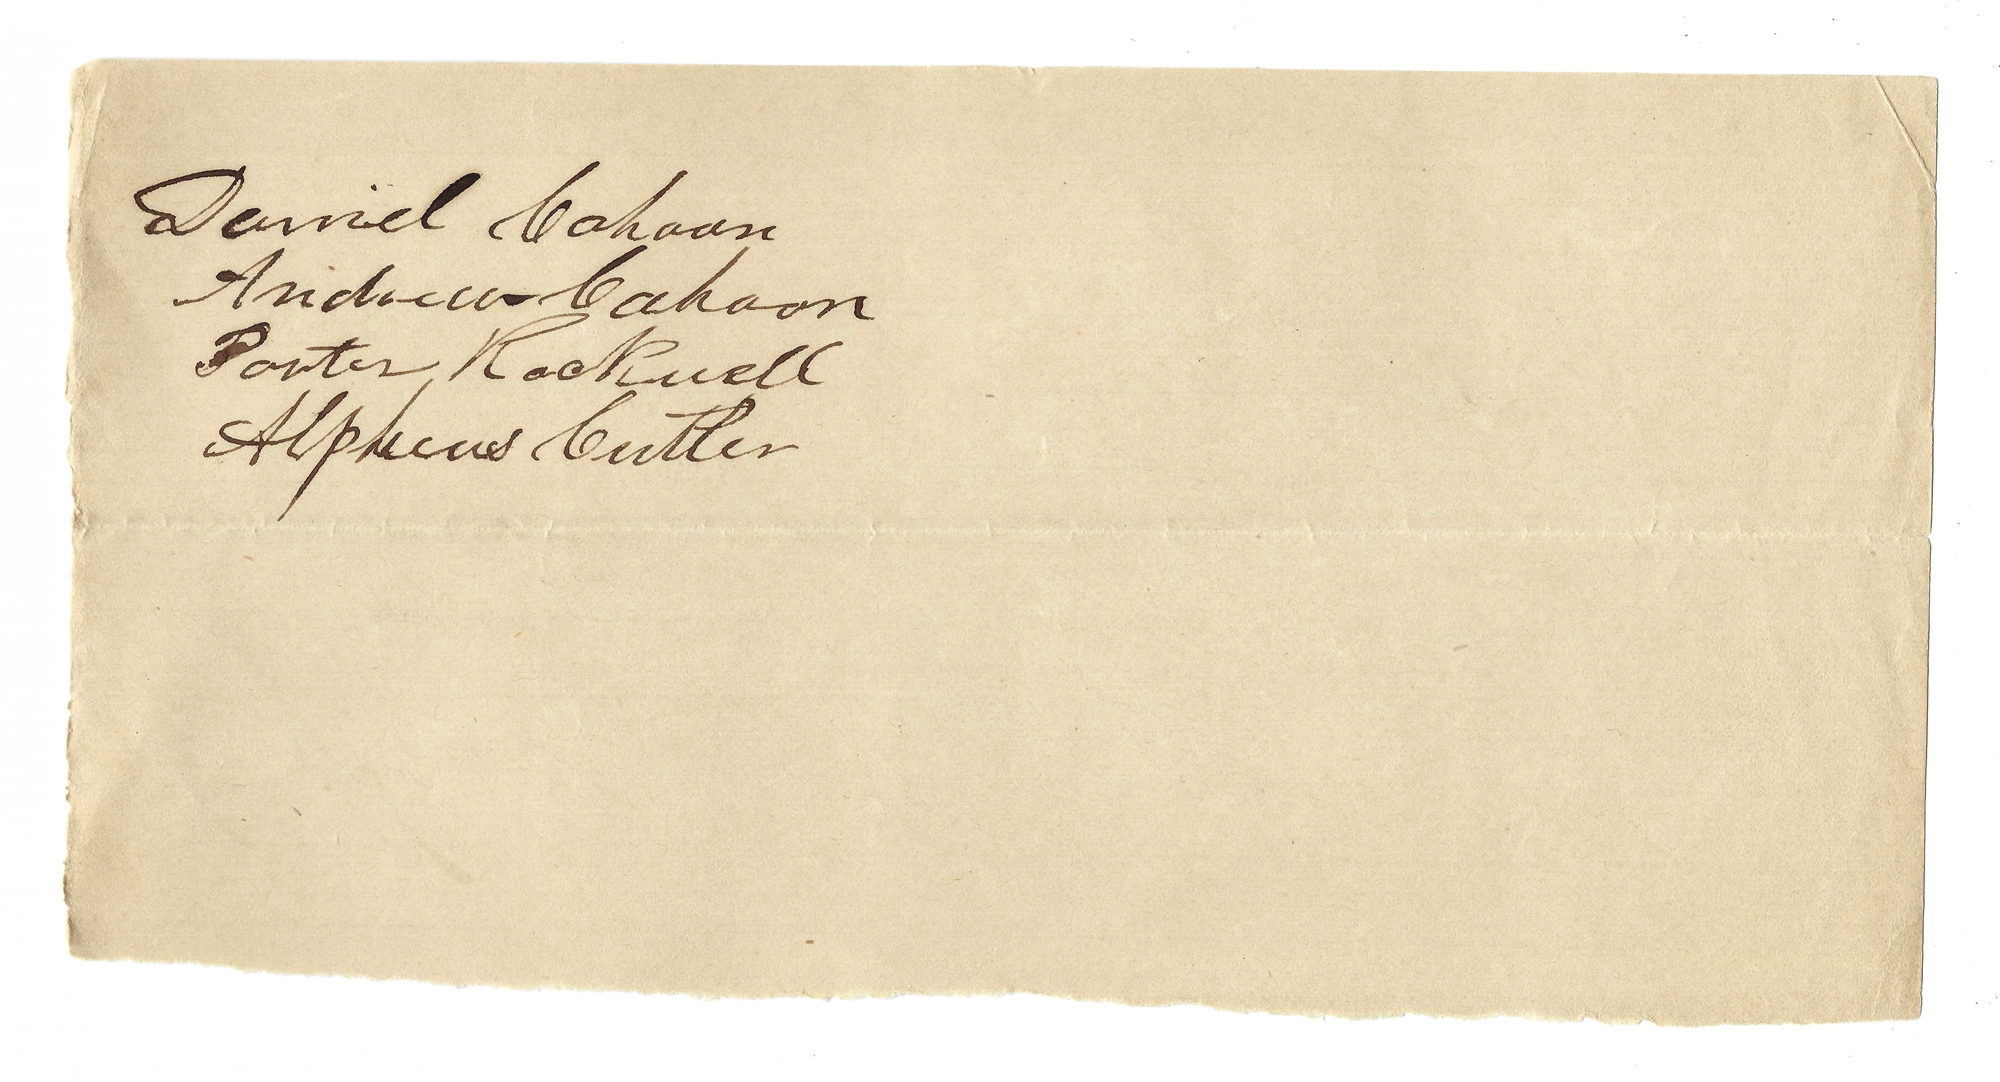 Daniel Cahoon
Andrew Cahoon
Porter Rockwell
Alpheus Cutler